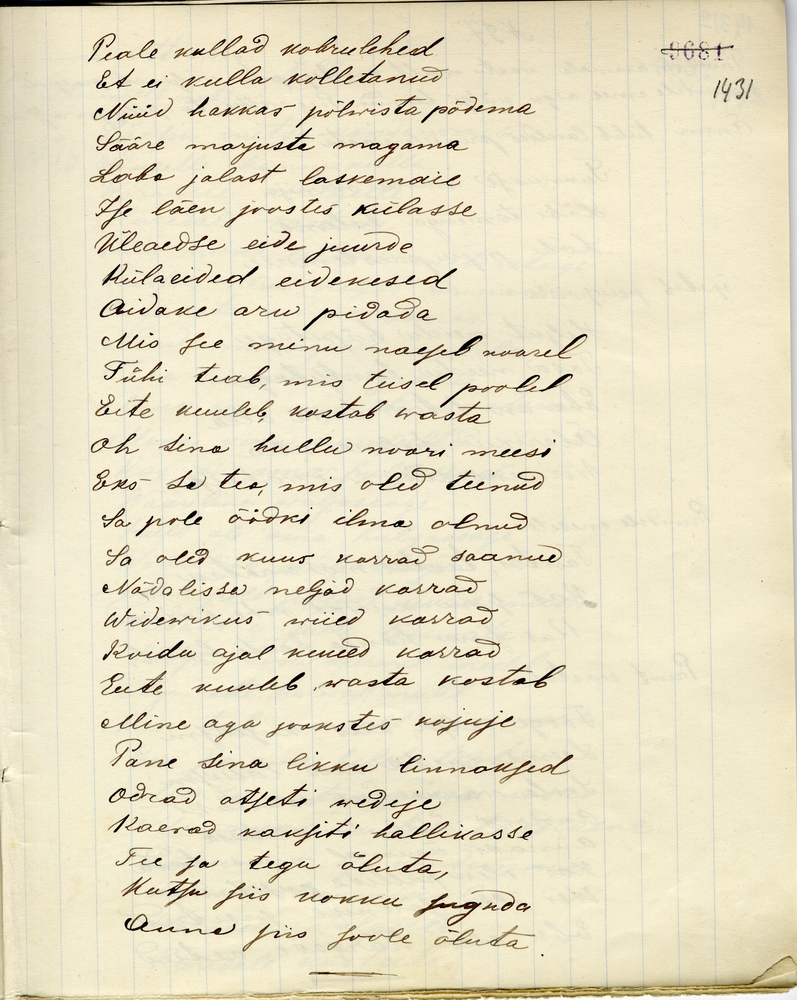 9681
1431
Peale kullad kobrulehed
Et ei kulla kolletanud
Nüüd hakkas põlwista põdema
Sääre marjusta magama
Laba jalast laskemaie
Ise läen joostes külasse
Üleaedse eide juurde
Külaeided eidekesed
Aidake aru pidada
Mis see minu naesel noorel
Tühi teab, mis teisel poolel
Eite kuuleb, kostab wasta
Oh sina hullu noori meesi
Eks sa tea, mis oled teinud
Sa pole öödki ilma olnud
Sa oled kuus korrad saanud
Nädalisse neljad korrad
Widewikus wiied korrad
Koidu ajal kuued korrad
Eite kuuleb wasta kostab
Mine aga jookstes kojuje
Pane sina likku linnaksed
Odrad otseti wedeje
Kaerad kaksiti hallikasse
Tee sa tegu õluta,
Kutsu siis kokku suguda
Anna siis soole õluta.